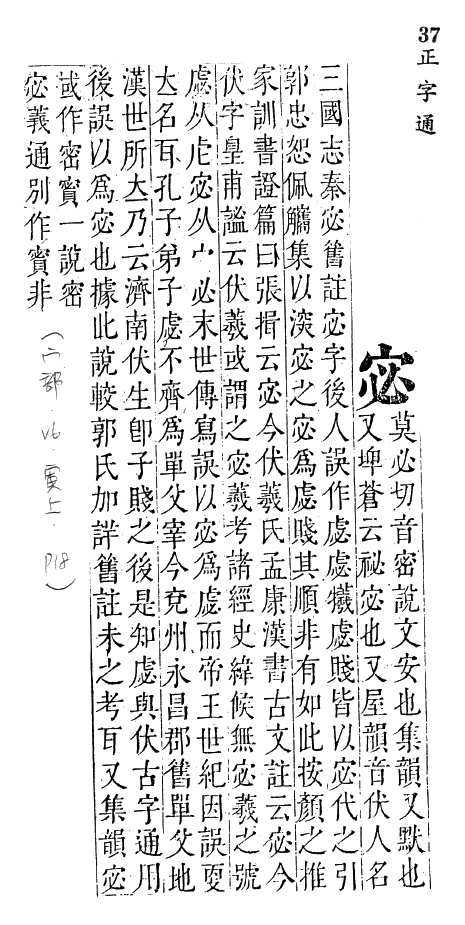 37
正字通
宓
莫必切音密說文安也集韻又默也
又埤蒼云祕宓也又屋韻音伏人名
三國志秦宓舊註宓字後人誤作虙虙犧虙賤皆以宓代之引
郭忠恕佩觿集以湥宓之宓爲虙賤其順非有如此按顏之推
家訓書證篇曰張揖云宓今伏羲氏孟康漢書古文註云宓今
伏字皇甫謐云伏羲或謂之宓羲考諸經史緯候無宓羲之號
虙从虍宓从宀必末世傳寫誤以宓爲虙而帝王世紀因誤更
立名耳孔子弟子虙不齊爲單父宰今兗州永昌郡舊單父地
漢世所立乃云濟南伏生卽子賤之後是知虙與伏古字通用
後誤以爲宓也據此說較郭氏加詳舊註未之考耳又集韻宓
或作密賓一說密
宓義通別作賓非
(宀部.v6.寅上.P18)